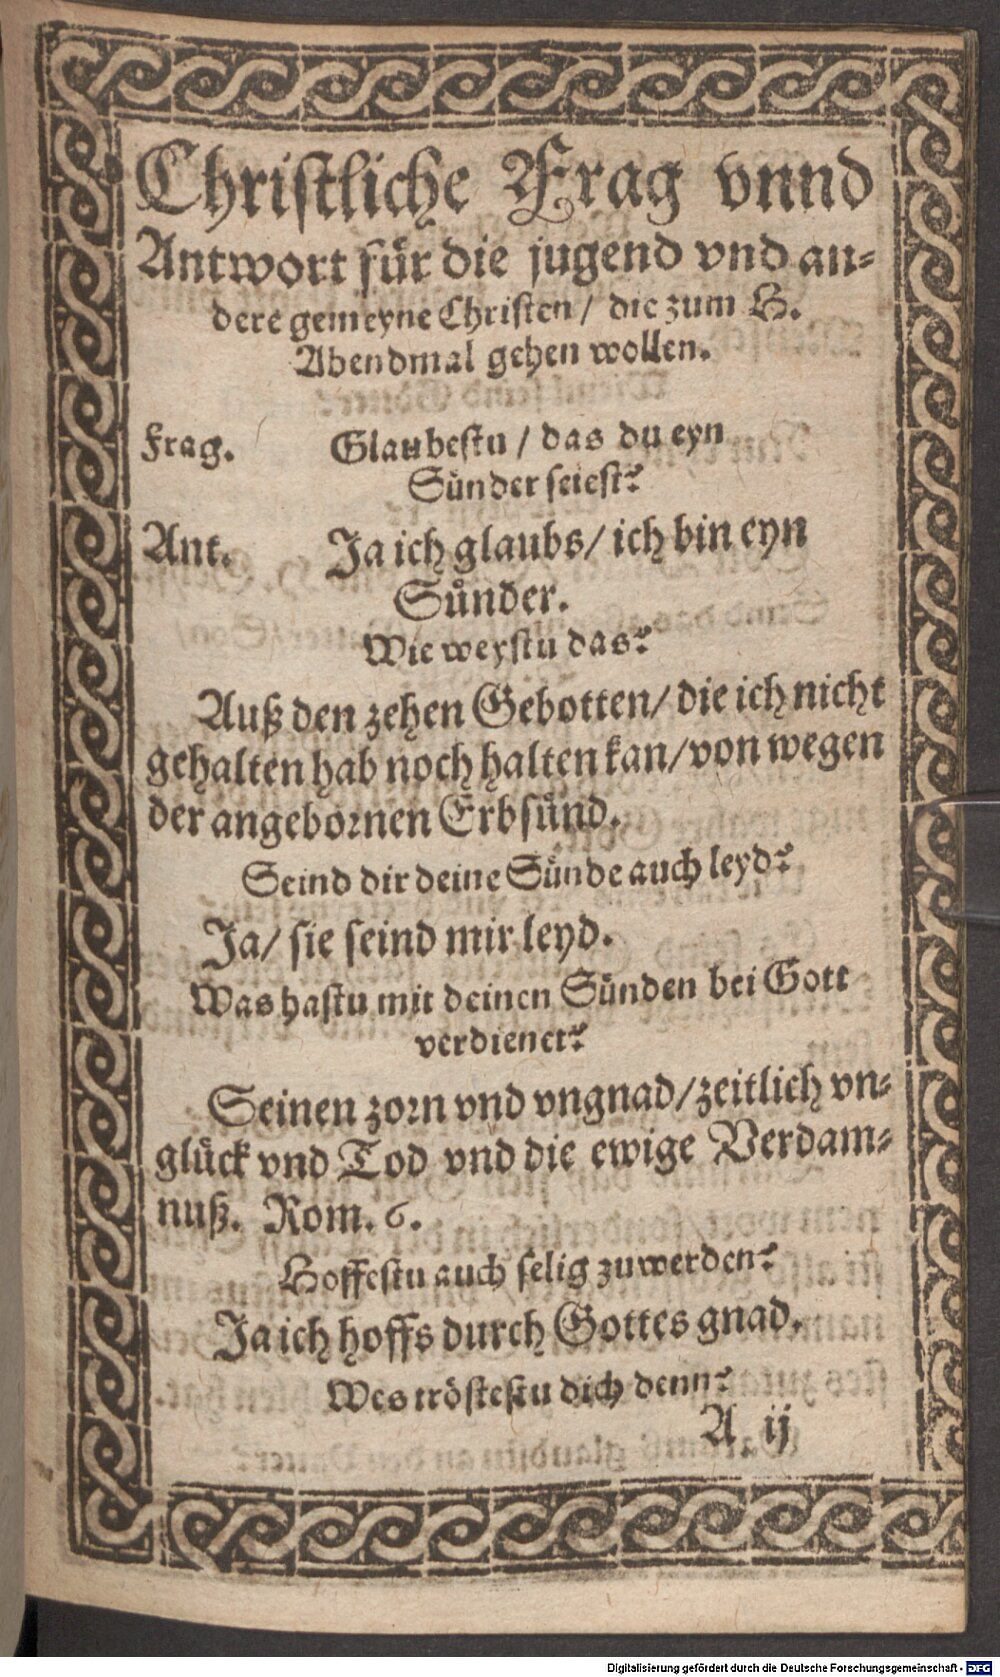 Christliche Frag vnnd
Antwort für die jugend vnd an⸗
dere gemeyne Christen / die zum H.
Abendmal gehen wollen.
Frag. Glaubestu / das du eyn
Sünder seiest?
Ant. Ja ich glaubs / ich bin eyn
Sünder.
Wie weystu das?
Auß den zehen Gebotten / die ich nicht
gehalten hab noch halten kan / von wegen
der angebornen Erbsünd.
Seind dir deine Sünde auch leyd?
Ja / sie seind mir leyd.
Was hastu mit deinen Sünden bei Gott
verdienet?
Seinen zorn vnd vngnad / zeitlich vn⸗
glück vnd Tod vnd die ewige Verdam⸗
nuß. Rom. 6.
Hoffestu auch selig zu werden?
Ja ich hoffs durch Gottes gnad.
Wes tröstestu dich denn?
A ij
Digitalisierung gefördert durch die Deutsche Forschungsgemeinschaft - DFG